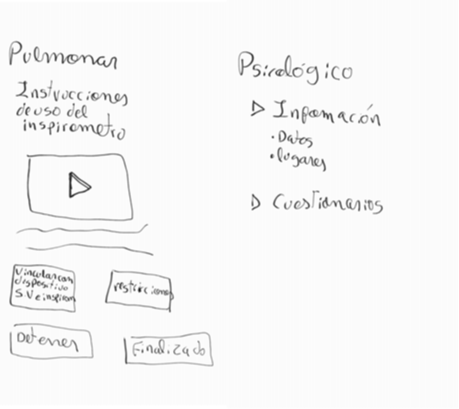 Pulmonar
Instrucciones
de uso del
inspirometro
Vincular con
dispositivo
S.V e inspirom
restricciones
Detener
Finalizado
Psicológico
Información
• Datos
• lugares
Cuestionarios